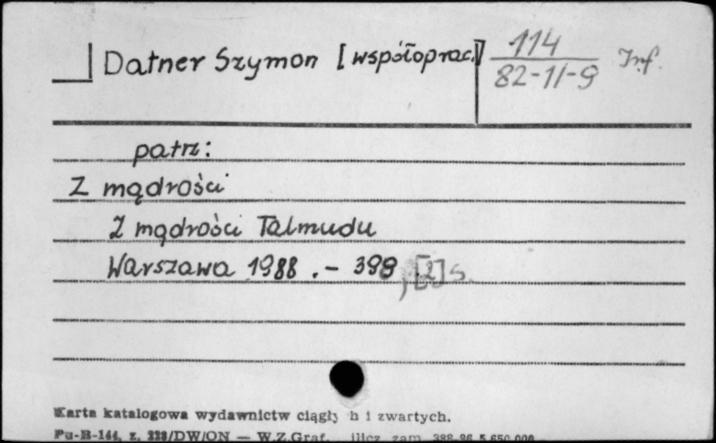 Datner Szymon [współoprac.] 114
82-11-9 Inf.
patrz:
Z mądrości
Z mądrości Talmudu
Warszawa 1988 .- 399, [1] s.
Karta katalogowa wydawnictw ciągły h i zwartych.
Pu-B-144, z. 223/DW/ON — W.Z.Graf. zam.